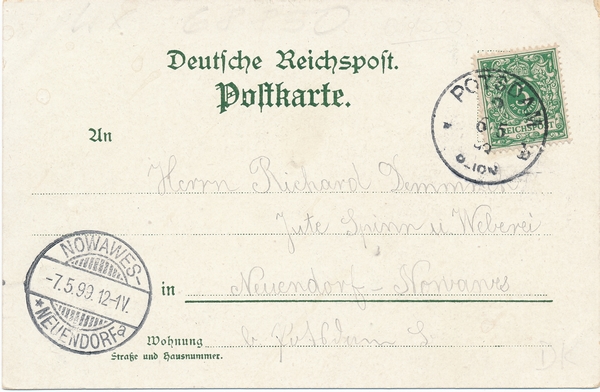 Deutsche Reichspost.
Postkarte.
POTSDAM
5
REICHSPOST
6 5
9-10N
An
Herrn Richard Demmin
Jute Spinn u Weberei
in Neuendorf-Nowawes
NOWAWES-
-7.5.99.12-1V.
*NEUENDORF a
Wohnung b Potsdam
Straße und Hausnummer.
DK